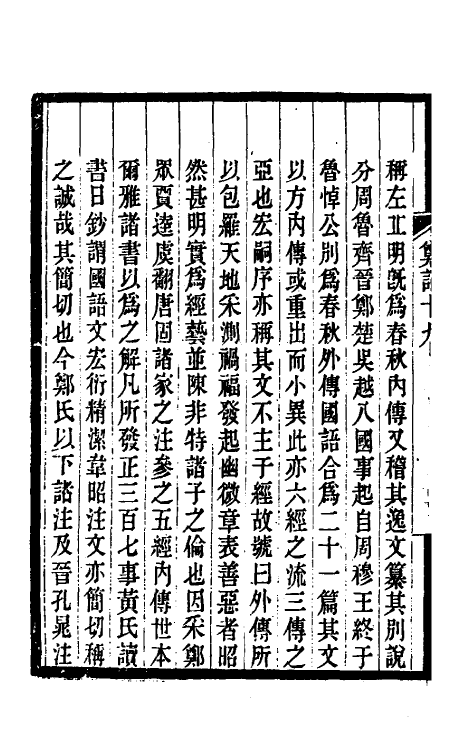 稱左丘明旣爲春秋內傳又稽其逸文纂其別說
分周魯齊晉鄭楚吳越八國事起自周穆王終于
魯悼公別爲春秋外傳國語合爲二十一篇其文
以方內傳或重出而小異此亦六經之流三傳之
亞也宏嗣序亦稱其文不主于經故號曰外傳所
以包羅天地采測禍福發起幽微章表善惡者昭
然甚明實爲經藝並陳非特諸子之倫也因采鄭
眾賈逵虞翻唐固諸家之注參之五經內傳世本
爾雅諸書以爲之解凡所發正三百七事黃氏讀
書日鈔謂國語文宏衍精潔韋昭注文亦簡切稱
之誠哉其簡切也今鄭氏以下諸注及晉孔晁注